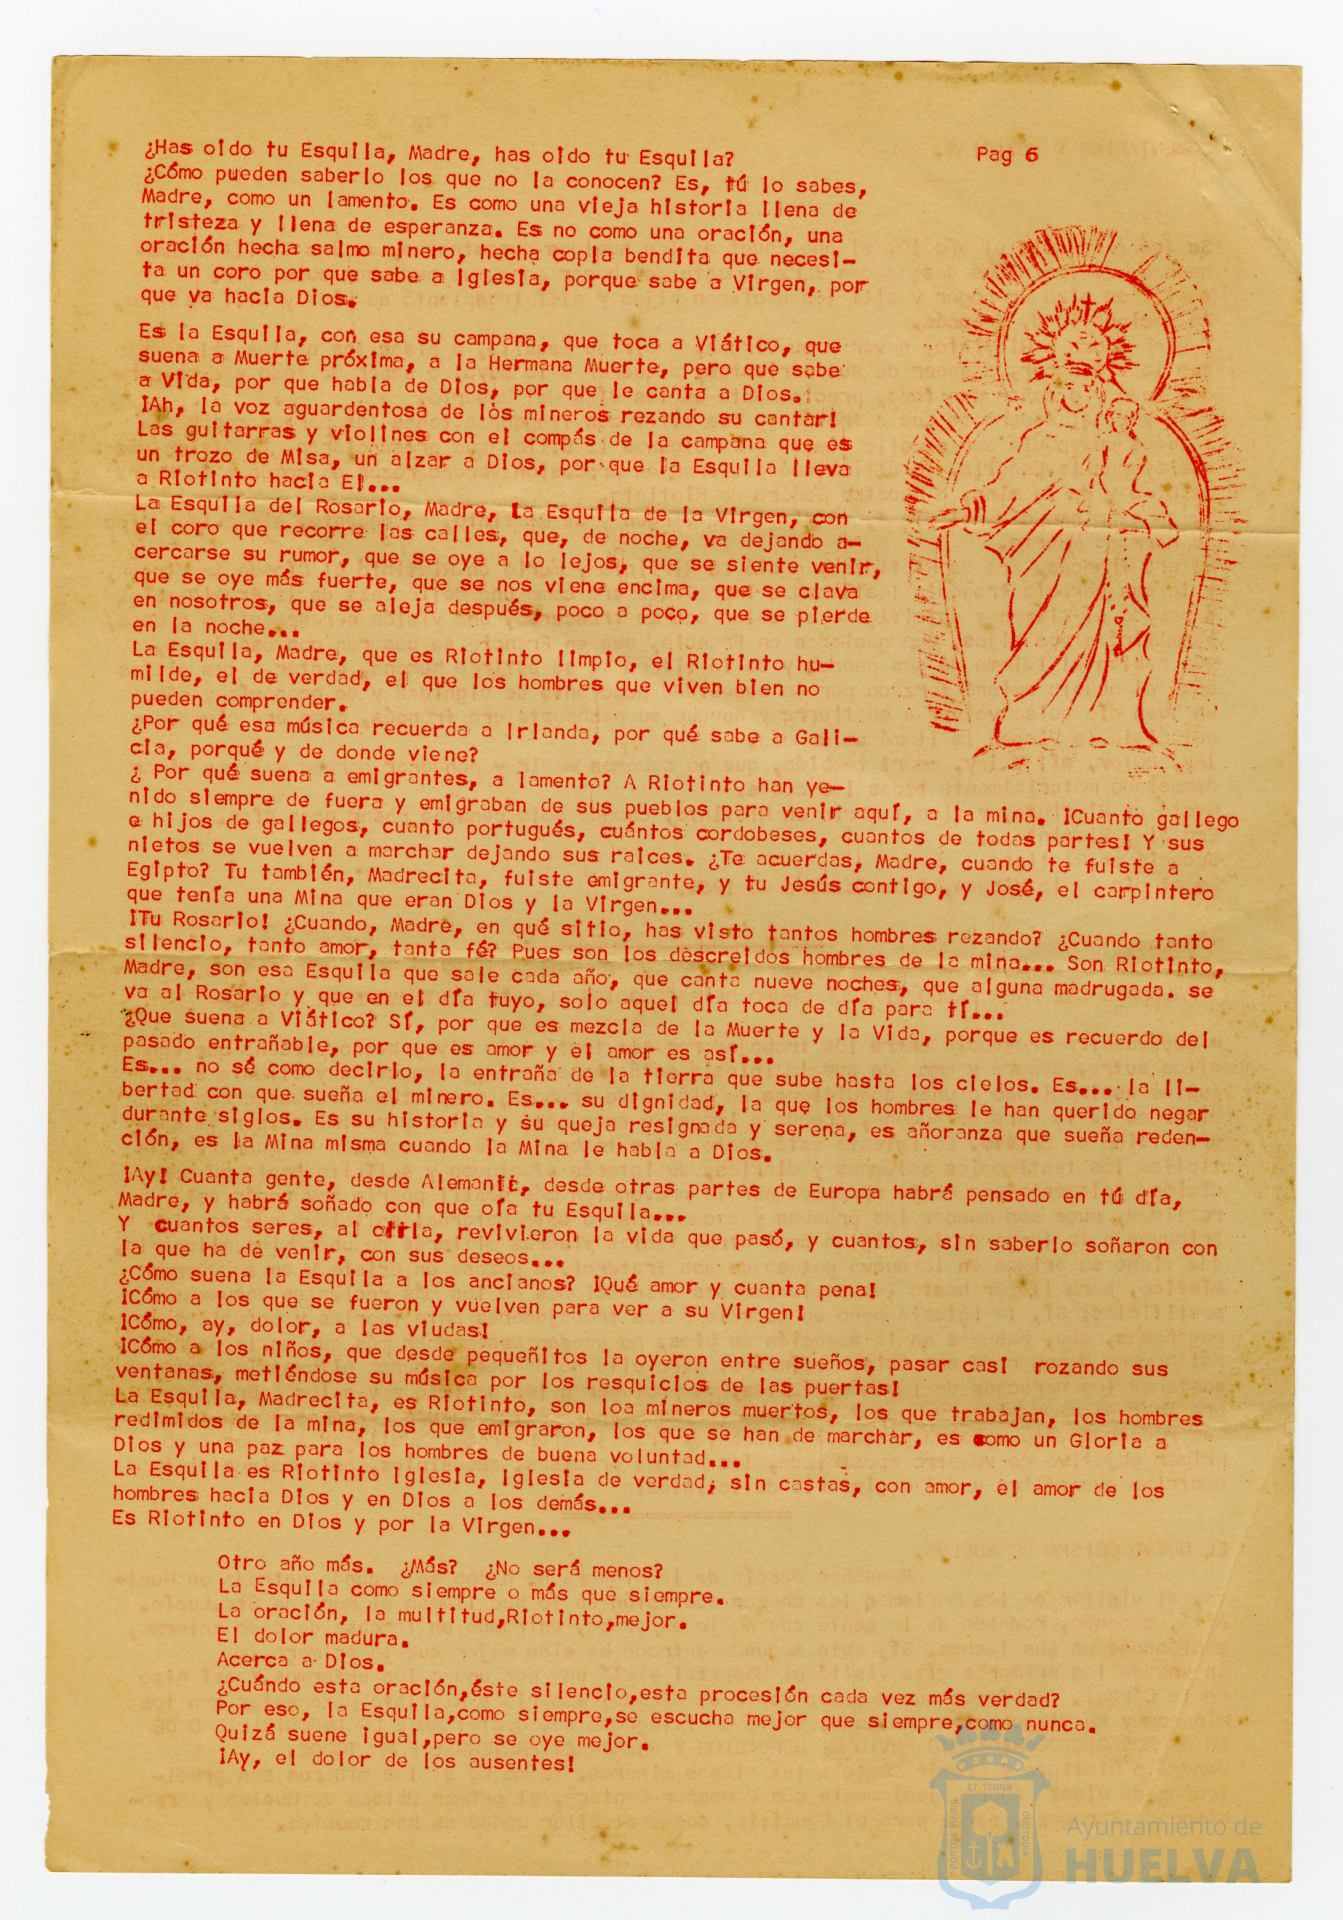 Pag 6
¿Has oído tu Esquila, Madre, has oído tu Esquila?
¿Cómo pueden saberlo los que no la conocen? Es, tú lo sabes,
Madre, como un lamento. Es como una vieja historia llena de
tristeza y llena de esperanza. Es no como una oración, una
oración hecha salmo minero, hecha copla bendita que necesi-
ta un coro por que sabe a Iglesia, porque sabe a Virgen, por
que va hacia Dios.
Es la Esquila, con esa su campana, que toca a Viático, que
suena a Muerte próxima, a la Hermana Muerte, pero que sabe
a Vida, por que habla de Dios, por que le canta a Dios.
¡Ah, la voz aguardentosa de los mineros rezando su cantar!
Las guitarras y violines con el compás de la campana que es
un trozo de Misa, un alzar a Dios, por que la Esquila lleva
a Riotinto hacia El...
La Esquila del Rosario, Madre, la Esquila de la Virgen, con
el coro que recorre las calles, que, de noche, va dejando a-
cercarse su rumor, que se oye a lo lejos, que se siente venir,
que se oye más fuerte, que se nos viene encima, que se clava
en nosotros, que se aleja después, poco a poco, que se pierde
en la noche...
La Esquila, Madre, que es Riotinto limpio, el Riotinto hu-
milde, el de verdad, el que los hombres que viven bien no
pueden comprender.
¿Por qué esa música recuerda a Irlanda, por qué sabe a Gali-
cia, porqué y de donde viene?
¿ Por qué suena a emigrantes, a lamento? A Riotinto han ve-
nido siempre de fuera y emigraban de sus pueblos para venir aquí, a la mina. ¡Cuanto gallego
e hijos de gallegos, cuanto portugués, cuántos cordobeses, cuantos de todas partes! Y sus
nietos se vuelven a marchar dejando sus raices. ¿Te acuerdas, Madre, cuando te fuiste a
Egipto? Tu también, Madrecita, fuiste emigrante, y tu Jesús contigo, y José, el carpintero
que tenía una Mina que eran Dios y la Virgen...
¡Tu Rosario! ¿Cuando, Madre, en qué sitio, has visto tantos hombres rezando? ¿Cuando tanto
silencio, tanto amor, tanta fé? Pues son los descreídos hombres de la mina... Son Riotinto,
Madre, son esa Esquila que sale cada año, que canta nueve noches, que alguna madrugada. se
va al Rosario y que en el día tuyo, solo aquel día toca de día para tí...
¿Que suena a Viático? Sí, por que es mezcla de la Muerte y la Vida, porque es recuerdo del
pasado entrañable, por que es amor y el amor es así...
Es... no sé como decirlo, la entraña de la tierra que sube hasta los cielos. Es... la li-
bertad con que sueña el minero. Es... su dignidad, la que los hombres le han querido negar
durante siglos. Es su historia y su queja resignada y serena, es añoranza que sueña reden-
ción, es la Mina misma cuando la Mina le habla a Dios.
¡Ay! Cuanta gente, desde desde otras partes de Europa habrá pensado en tú día,
Madre, y habrá soñado con que oía tu Esquila...
Y cuantos seres, al revivieron la vida que pasó, y cuantos, sin saberlo soñaron con
la que ha de venir, con sus deseos...
¿Cómo suena la Esquila a los ancianos? ¡Qué amor y cuanta pena!
¡Cómo a los que se fueron y vuelven para ver a su Virgen!
¡Cómo, ay, dolor, a las viudas!
¡Cómo a los niños, que desde pequeñitos la oyeron entre sueños, pasar casi rozando sus
ventanas, metiéndose su música por los resquicios de las puertas!
La Esquila, Madrecita, es Riotinto, son loa mineros muertos, los que trabajan, los hombres
redimidos de la mina, los que emigraron, los que se han de marchar, es como un Gloria a
Dios y una paz para los hombres de buena voluntad...
La Esquila es Riotinto Iglesia, Iglesia de verdad, sin castas, con amor, el amor de los
hombres hacia Dios y en Dios a los demás...
Es Riotinto en Dios y por la Virgen...
Otro año más. ¿Más? ¿No será menos?
La Esquila como siempre o más que siempre.
La oración, la multitud,Riotinto,mejor.
El dolor madura.
Acerca a Dios.
¿Cuándo esta oración,éste silencio,esta procesión cada vez más verdad?
Por eso, la Esquila,como siempre,se escucha mejor que siempre,como nunca.
Quizá suene igual,pero se oye mejor.
¡Ay, el dolor de los ausentes!
Ayuntamiento de
HUELVA
PORTUS MARIS ET TERRAE CUSTODIA